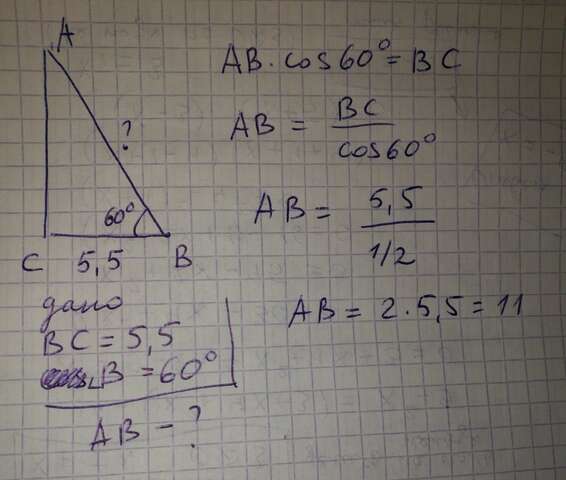 A
?
60°
C 5,5 B
дано
BC = 5,5
∠B = 60°
AB - ?
AB · cos60° = BC
AB = BC / cos60°
AB = 5,5 / 1/2
AB = 2 · 5,5 = 11